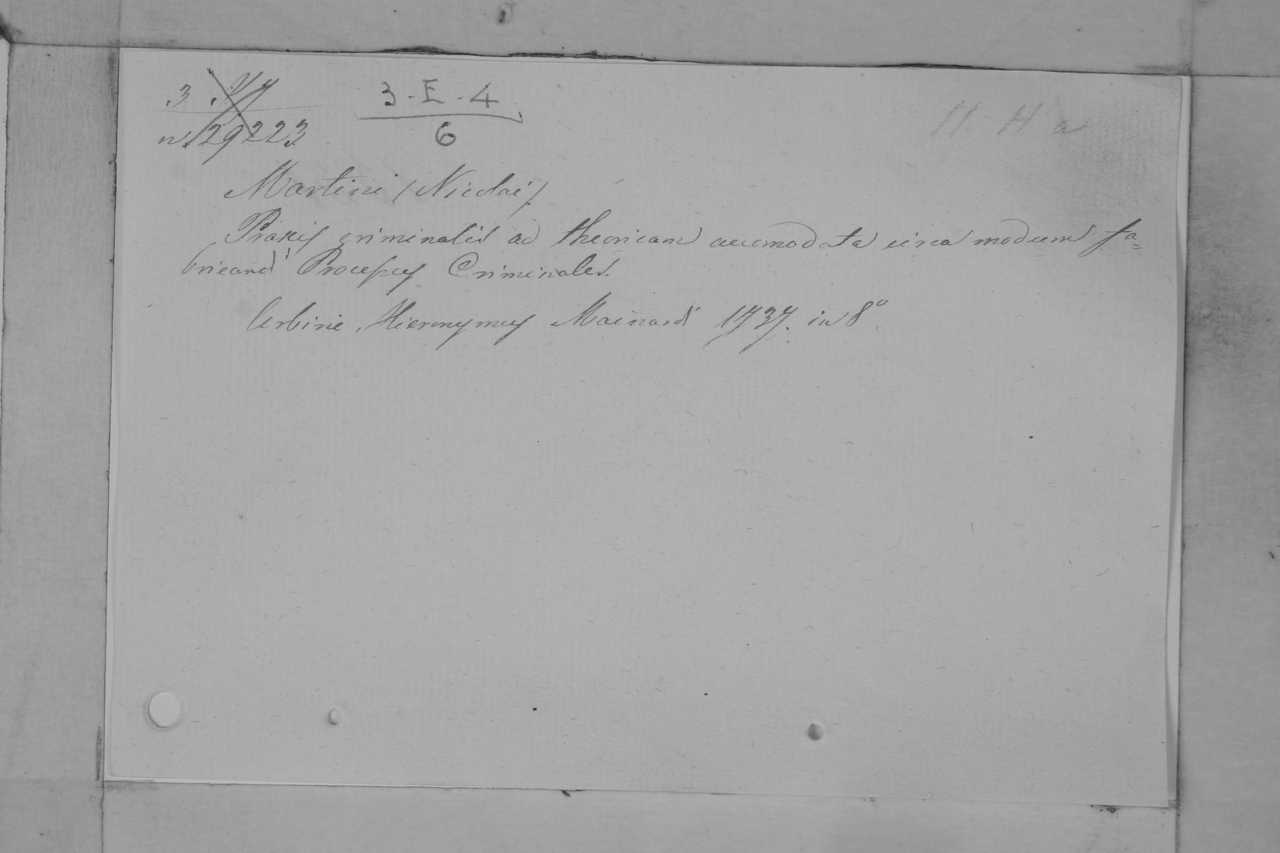 3
3-E-4
n. 29223
6
11 H a
Martini (Nicolai).
Praxis criminalis ad theoricam accomodata circa modum fa=
bricandi Processus Criminales.
Urbini, Hieronymus Mainardi 1737. in 8º